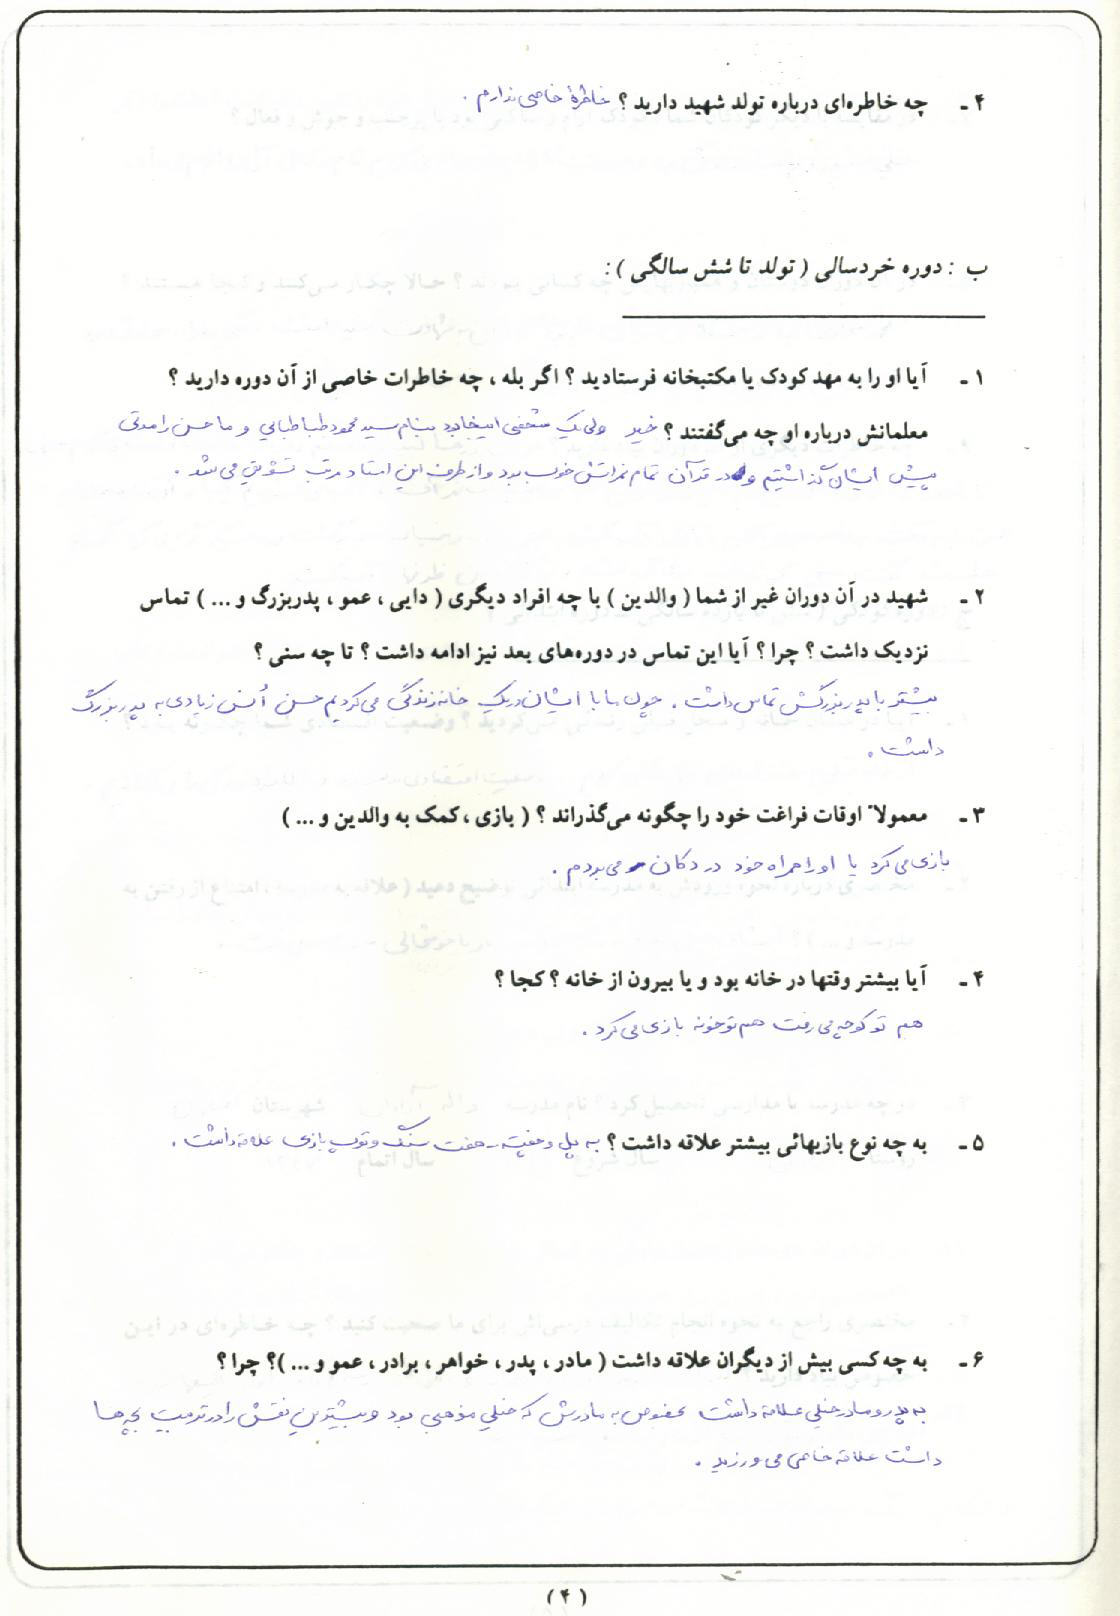 ۴ ـ چه خاطره‌ای درباره تولد شهید دارید ؟ خاطرهٔ خاصی ندارم .
ب : دوره خردسالی ( تولد تا شش سالگی ) :
۱ ـ آیا او را به مهد کودک یا مکتبخانه فرستادید ؟ اگر بله ، چه خاطرات خاصی از آن دوره دارید ؟
معلمانش درباره او چه می‌گفتند ؟ خیر ولی یک شخصی اینجا بود بنام سید محمود طباطبایی و ما حسن را مدتی
پیش ایشان گذاشتیم و در قرآن تمام نمراتش خوب بود و از طرف این استاد مرتب تشویق می شد .
۲ ـ شهید در آن دوران غیر از شما ( والدین ) با چه افراد دیگری ( دایی ، عمو ، پدربزرگ و ... ) تماس
نزدیک داشت ؟ چرا ؟ آیا این تماس در دوره‌های بعد نیز ادامه داشت ؟ تا چه سنی ؟
بیشتر با پدربزرگش تماس داشت . چون ما با ایشان در یک خانه زندگی می کردیم حسن اُنس زیادی به پدربزرگ
داشت .
۳ ـ معمولاً اوقات فراغت خود را چگونه می‌گذراند ؟ ( بازی ، کمک به والدین و ... )
بازی می کرد یا او را همراه خود در دکان می بردم .
۴ ـ آیا بیشتر وقتها در خانه بود و یا بیرون از خانه ؟ کجا ؟
هم تو کوچه می رفت هم تو خونه بازی می کرد .
۵ ـ به چه نوع بازیهائی بیشتر علاقه داشت ؟ به پل و چفته ـ هفت سنگ و توپ بازی علاقه داشت .
۶ ـ به چه کسی بیش از دیگران علاقه داشت ( مادر ، پدر ، خواهر ، برادر ، عمو و ... )؟ چرا ؟
به پدر و مادر خیلی علاقه داشت بخصوص به مادرش که خیلی مذهبی بود و بیشترین نقش را در تربیت بچه ها
داشت علاقه خاصی می ورزید .
( ۴ )